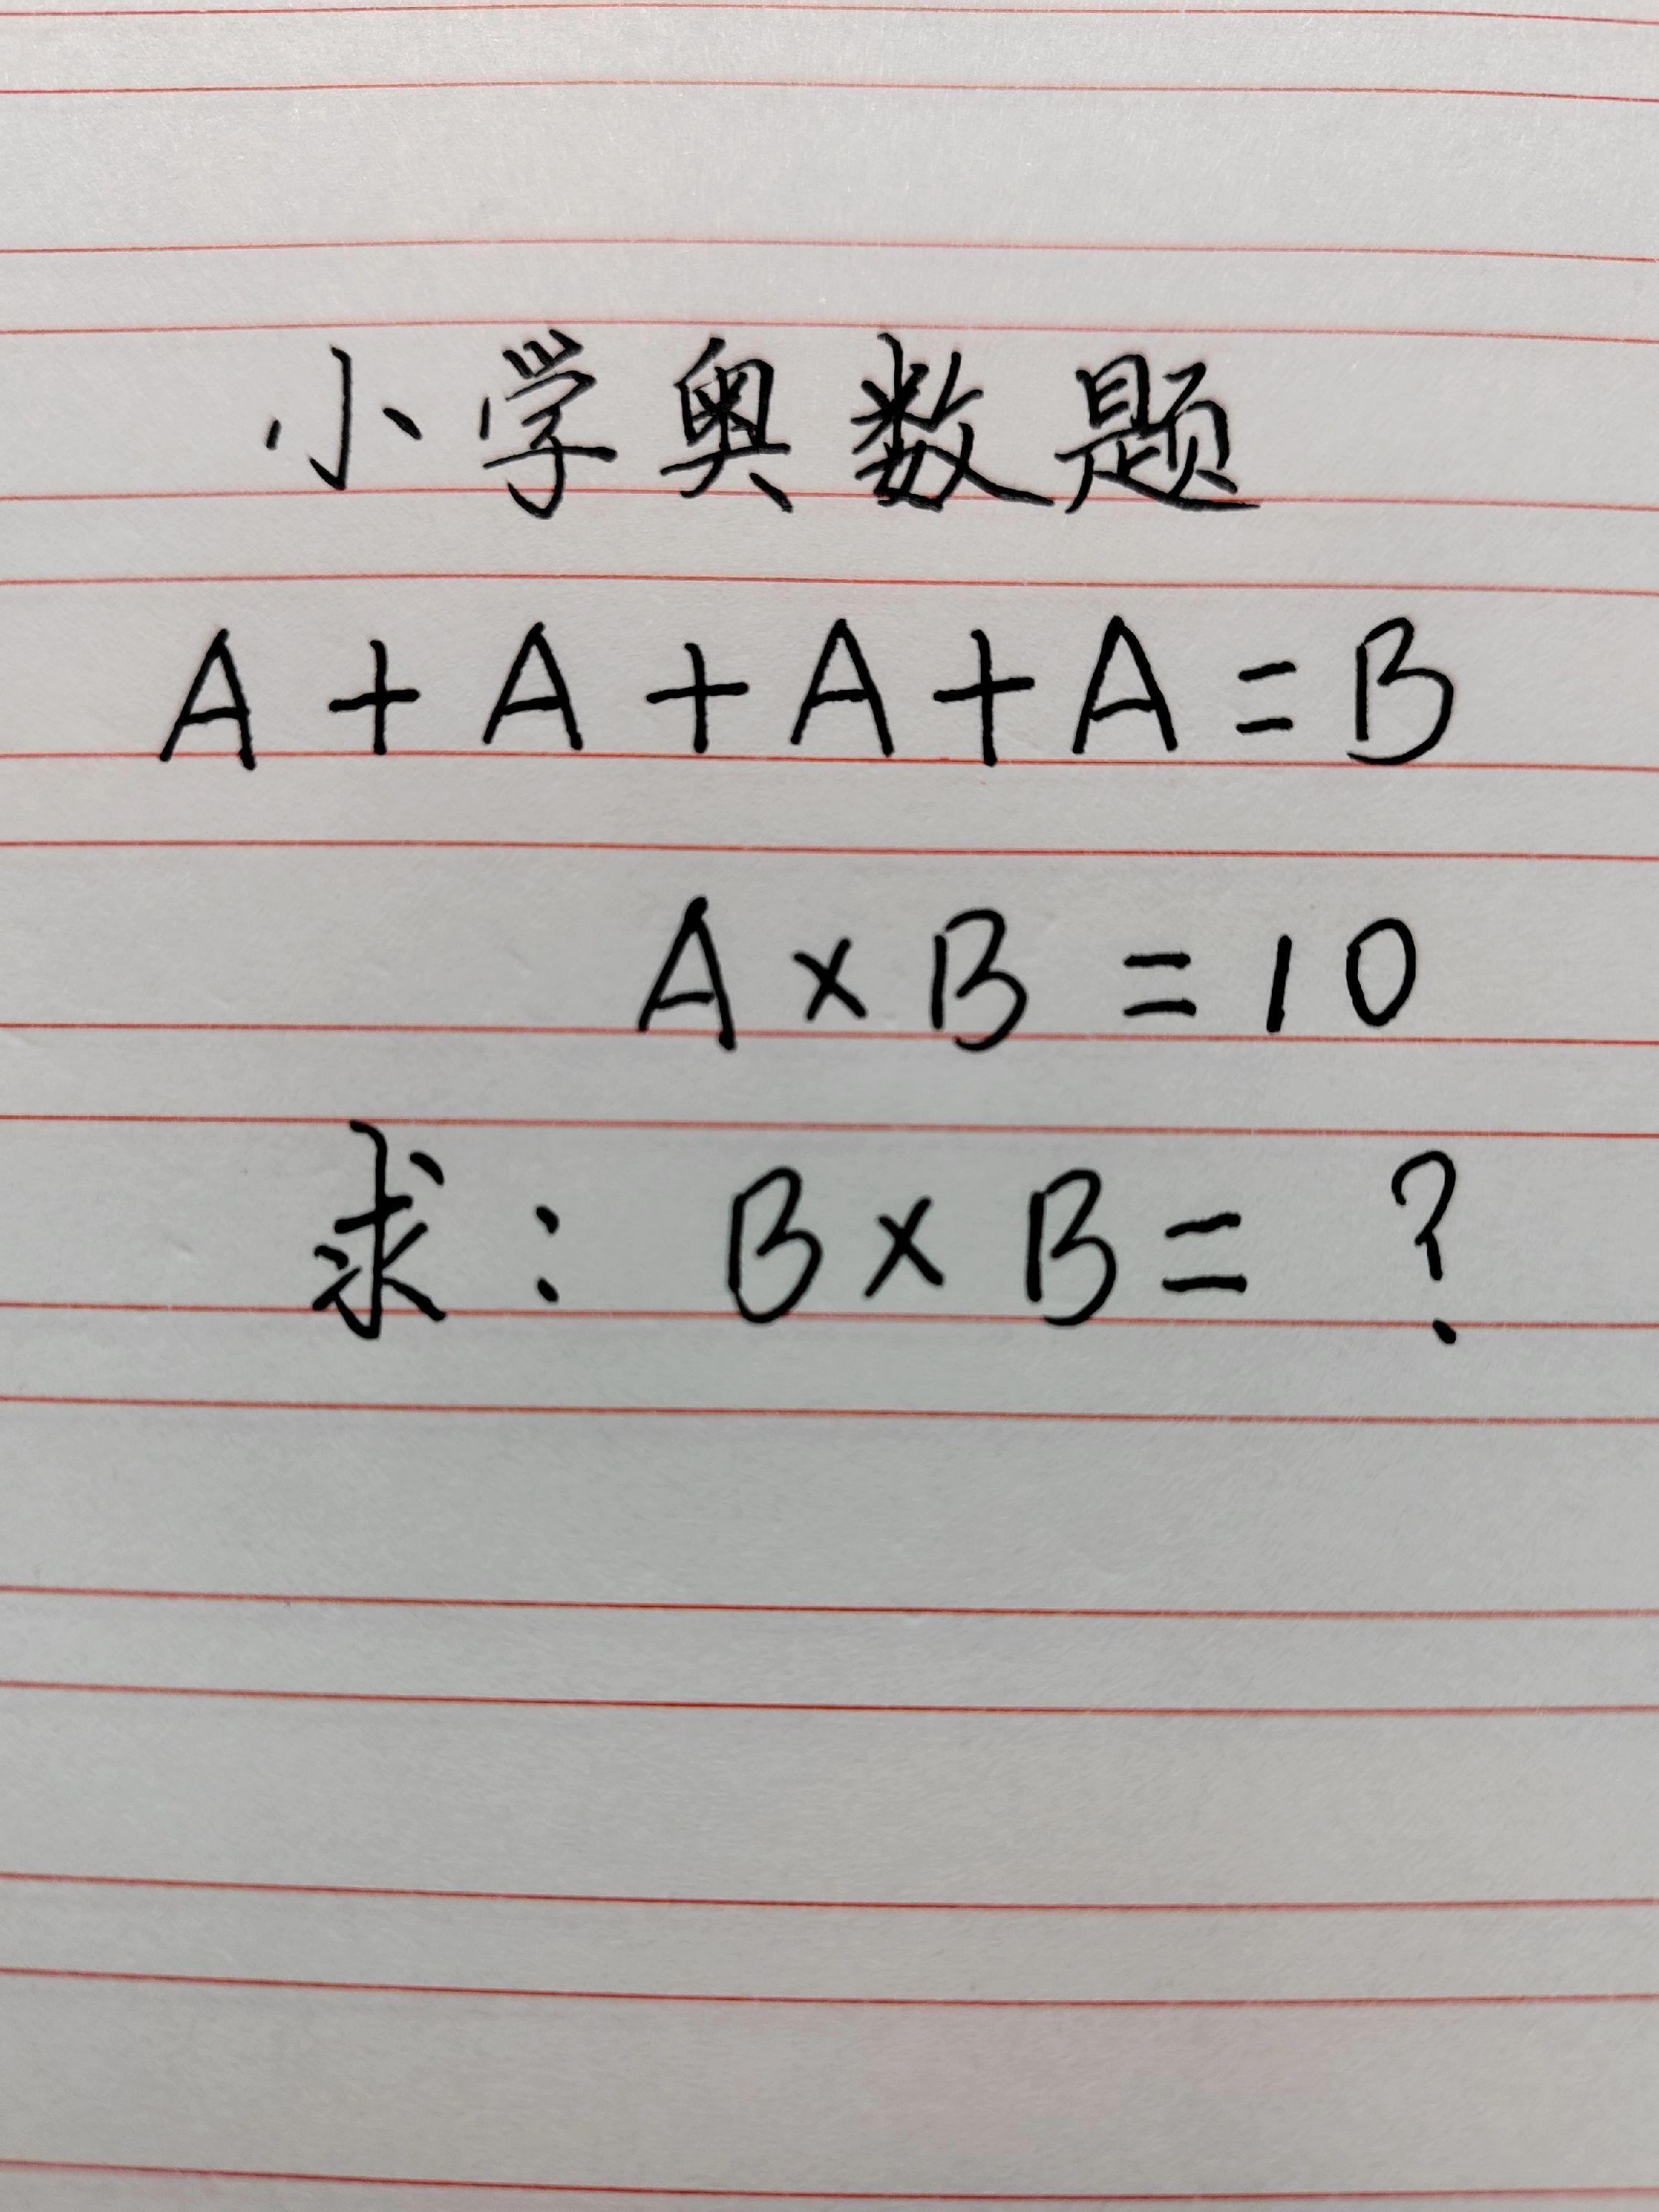 小学奥数题
A+A+A+A=B
A×B=10
求：B×B=？